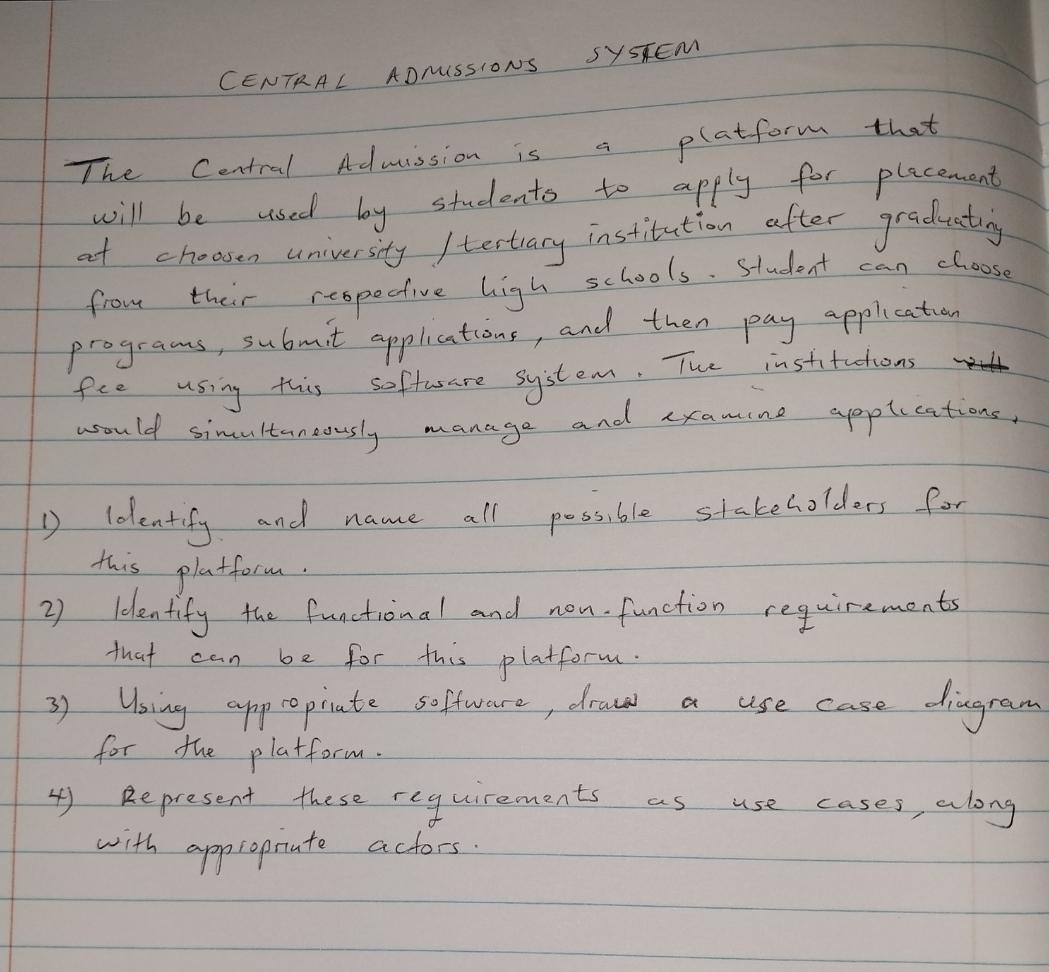 CENTRAL ADMISSIONS SYSTEM
The Central Admission is a platform that
will be used by students to apply for placement
at choosen university / tertiary institution after graduating
from their respective high schools. Student can choose
programs, submit applications, and then pay application
fee using this software system. The institutions
would simultaneously manage and examine applications.
1) Identify and name all possible stakeholders for
this platform.
2) Identify the functional and non-function requirements
that can be for this platform.
3) Using appropriate software, draw a use case diagram
for the platform.
4) Represent these requirements as use cases, along
with appropriate actors.